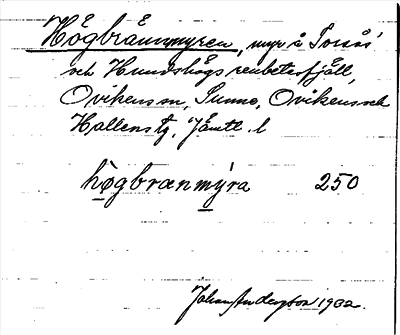 Högbrännmyren, myr å Torsås
och Hundshögs renbetesfjäll,
Ovikens sn, Sunne, Ovikens och
Hallens tg, Jämtl. l
högbrænmýra 250
Johan Anderzon 1932.